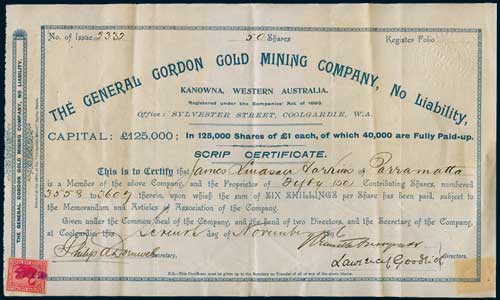 No. of Issue 2332
50 Shares
Register Folio
THE GENERAL GORDON GOLD MINING COMPANY, No Liability,
KANOWNA, WESTERN AUSTRALIA.
Registered under the Companies' Act of 1893.
Office: SYLVESTER STREET, COOLGARDIE, W.A.
CAPITAL: £125,000; In 125,000 Shares of £1 each, of which 40,000 are Fully Paid-up.
SCRIP CERTIFICATE.
This is to Certify that James Lindsay of Parramatta
is a Member of the above Company, and the Proprietor of Fifty (50) Contributing Shares, numbered
3558 to therein, upon which the sum of SIX SHILLINGS per Share has been paid, subject to
the Memorandum and Articles of Association of the Company.
Given under the Common Seal of the Company, and the Hand of two Directors, and the Secretary of the Company,
at Coolgardie this day of November
Secretary.
Lawrence Goodrich
N.B.—This Certificate must be given up to the Secretary on Transfer of all or any of the above Shares.
THE GENERAL GORDON GOLD MINING COMPANY, NO LIABILITY.